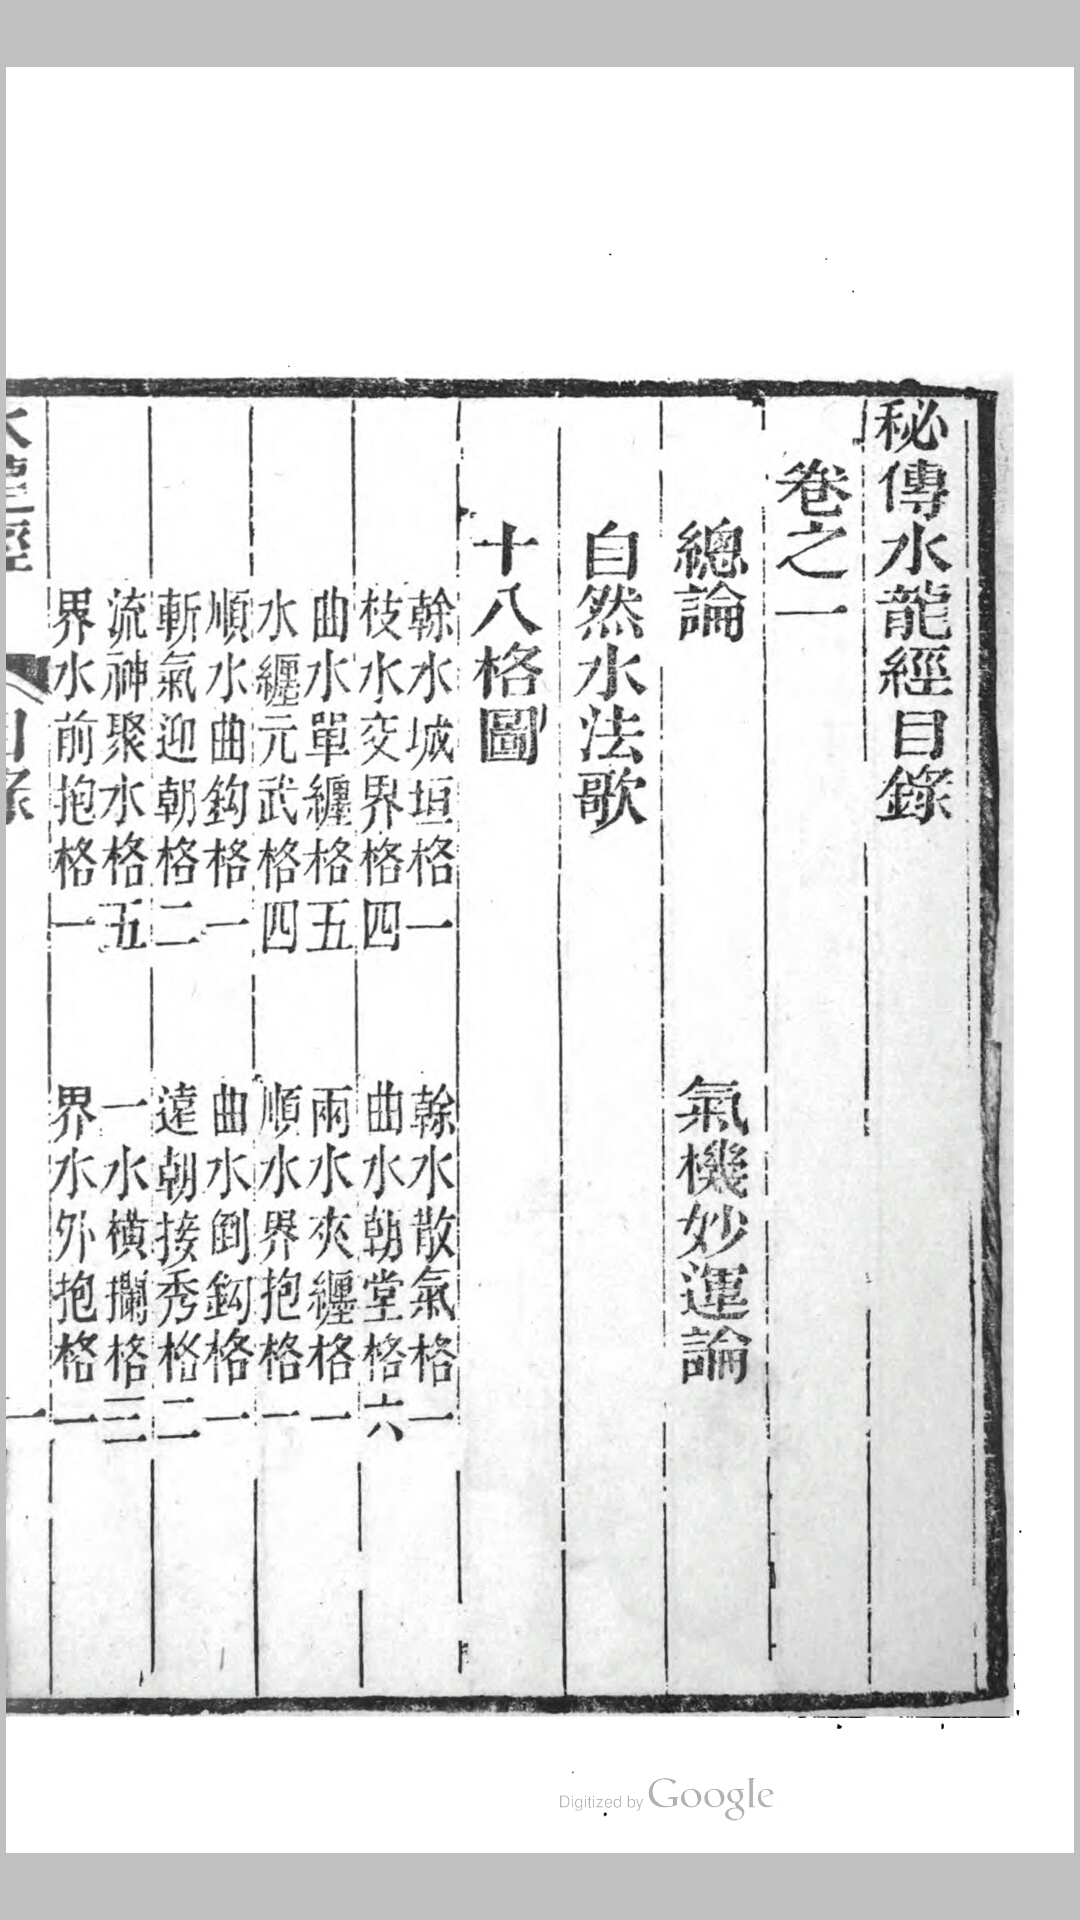 秘傳水龍經目錄
卷之一
總論
氣機妙運論
自然水法歌
十八格圖
幹水城垣格一
幹水散氣格一
枝水交界格四
曲水朝堂格六
曲水單纏格五
兩水夾纏格一
水纏元武格四
順水界抱格一
順水曲鈎格一
曲水倒鈎格一
斬氣迎朝格二
遠朝接秀格二
流神聚水格五
一水橫攔格三
界水前抱格一
界水外抱格一
水龍經
目錄
一
Digitized by Google